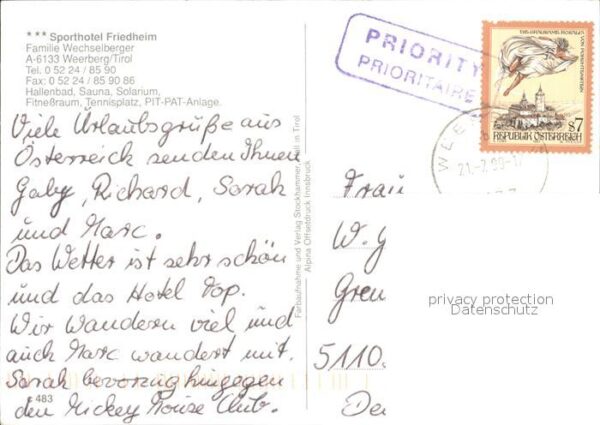 *** Sporthotel Friedheim
Familie Wechselberger
A-6133 Weerberg/Tirol
Tel. 0 52 24 / 85 90
Fax 0 52 24 / 85 90 86
Hallenbad, Sauna, Solarium,
Fitneßraum, Tennisplatz, PIT-PAT-Anlage.
Viele Urlaubsgrüße aus
Österreich senden Ihnen
Gaby, Richard, Sarah
und Marc.
Das Wetter ist sehr schön
und das Hotel Top.
Wir wandern viel und
auch Marc wandert mit.
Sarah bevorzugt hingegen
den Mickey Mouse Club.
483
Farbaufnahme und Verlag Stockhammer, Hall in Tirol
Alpina Offsetdruck Innsbruck
PRIORITY
PRIORITAIRE
REPUBLIK ÖSTERREICH
S7
Frau
W. G
Gren
5110
De
privacy protection
Datenschutz